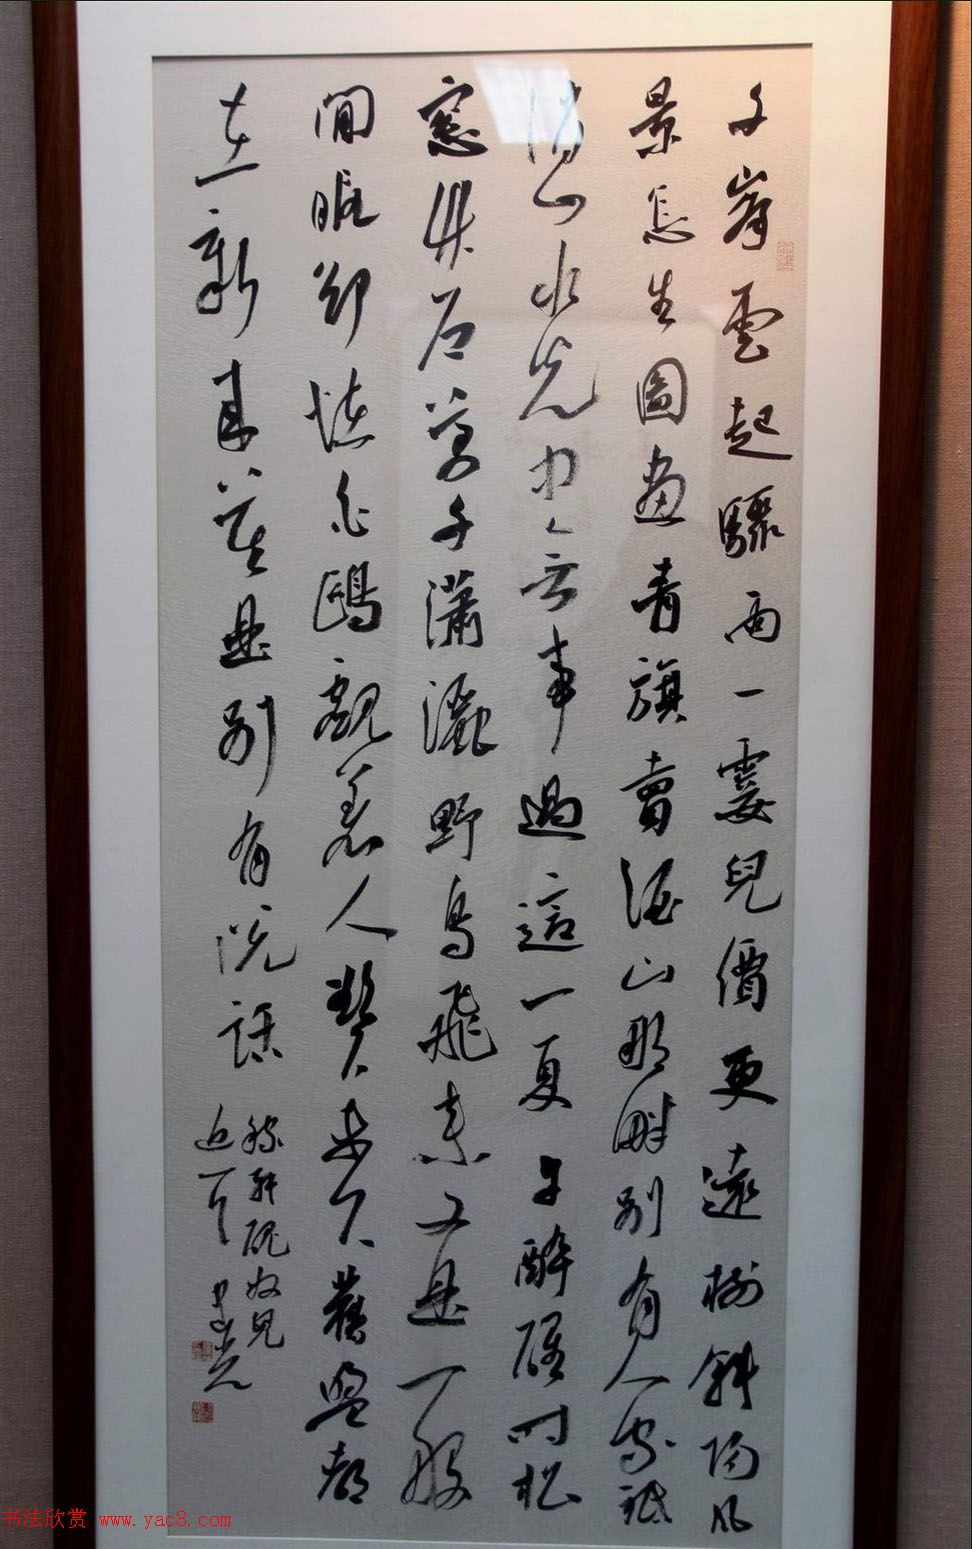 千峯雲起驟雨一霎兒價更遠樹斜陽風
景怎生圖畫青旗賣酒山那畔別有人家秪
消山水光中無事過這一夏午醉醒時松
窓竹戶萬千瀟灑野鳥飛來又是一般
閒暇卻怪白鷗覷着人欲下未下舊盟都
在新來莫是別有說話
稼軒醜奴兒
近一首 建光
书法欣赏 www.yac8.com